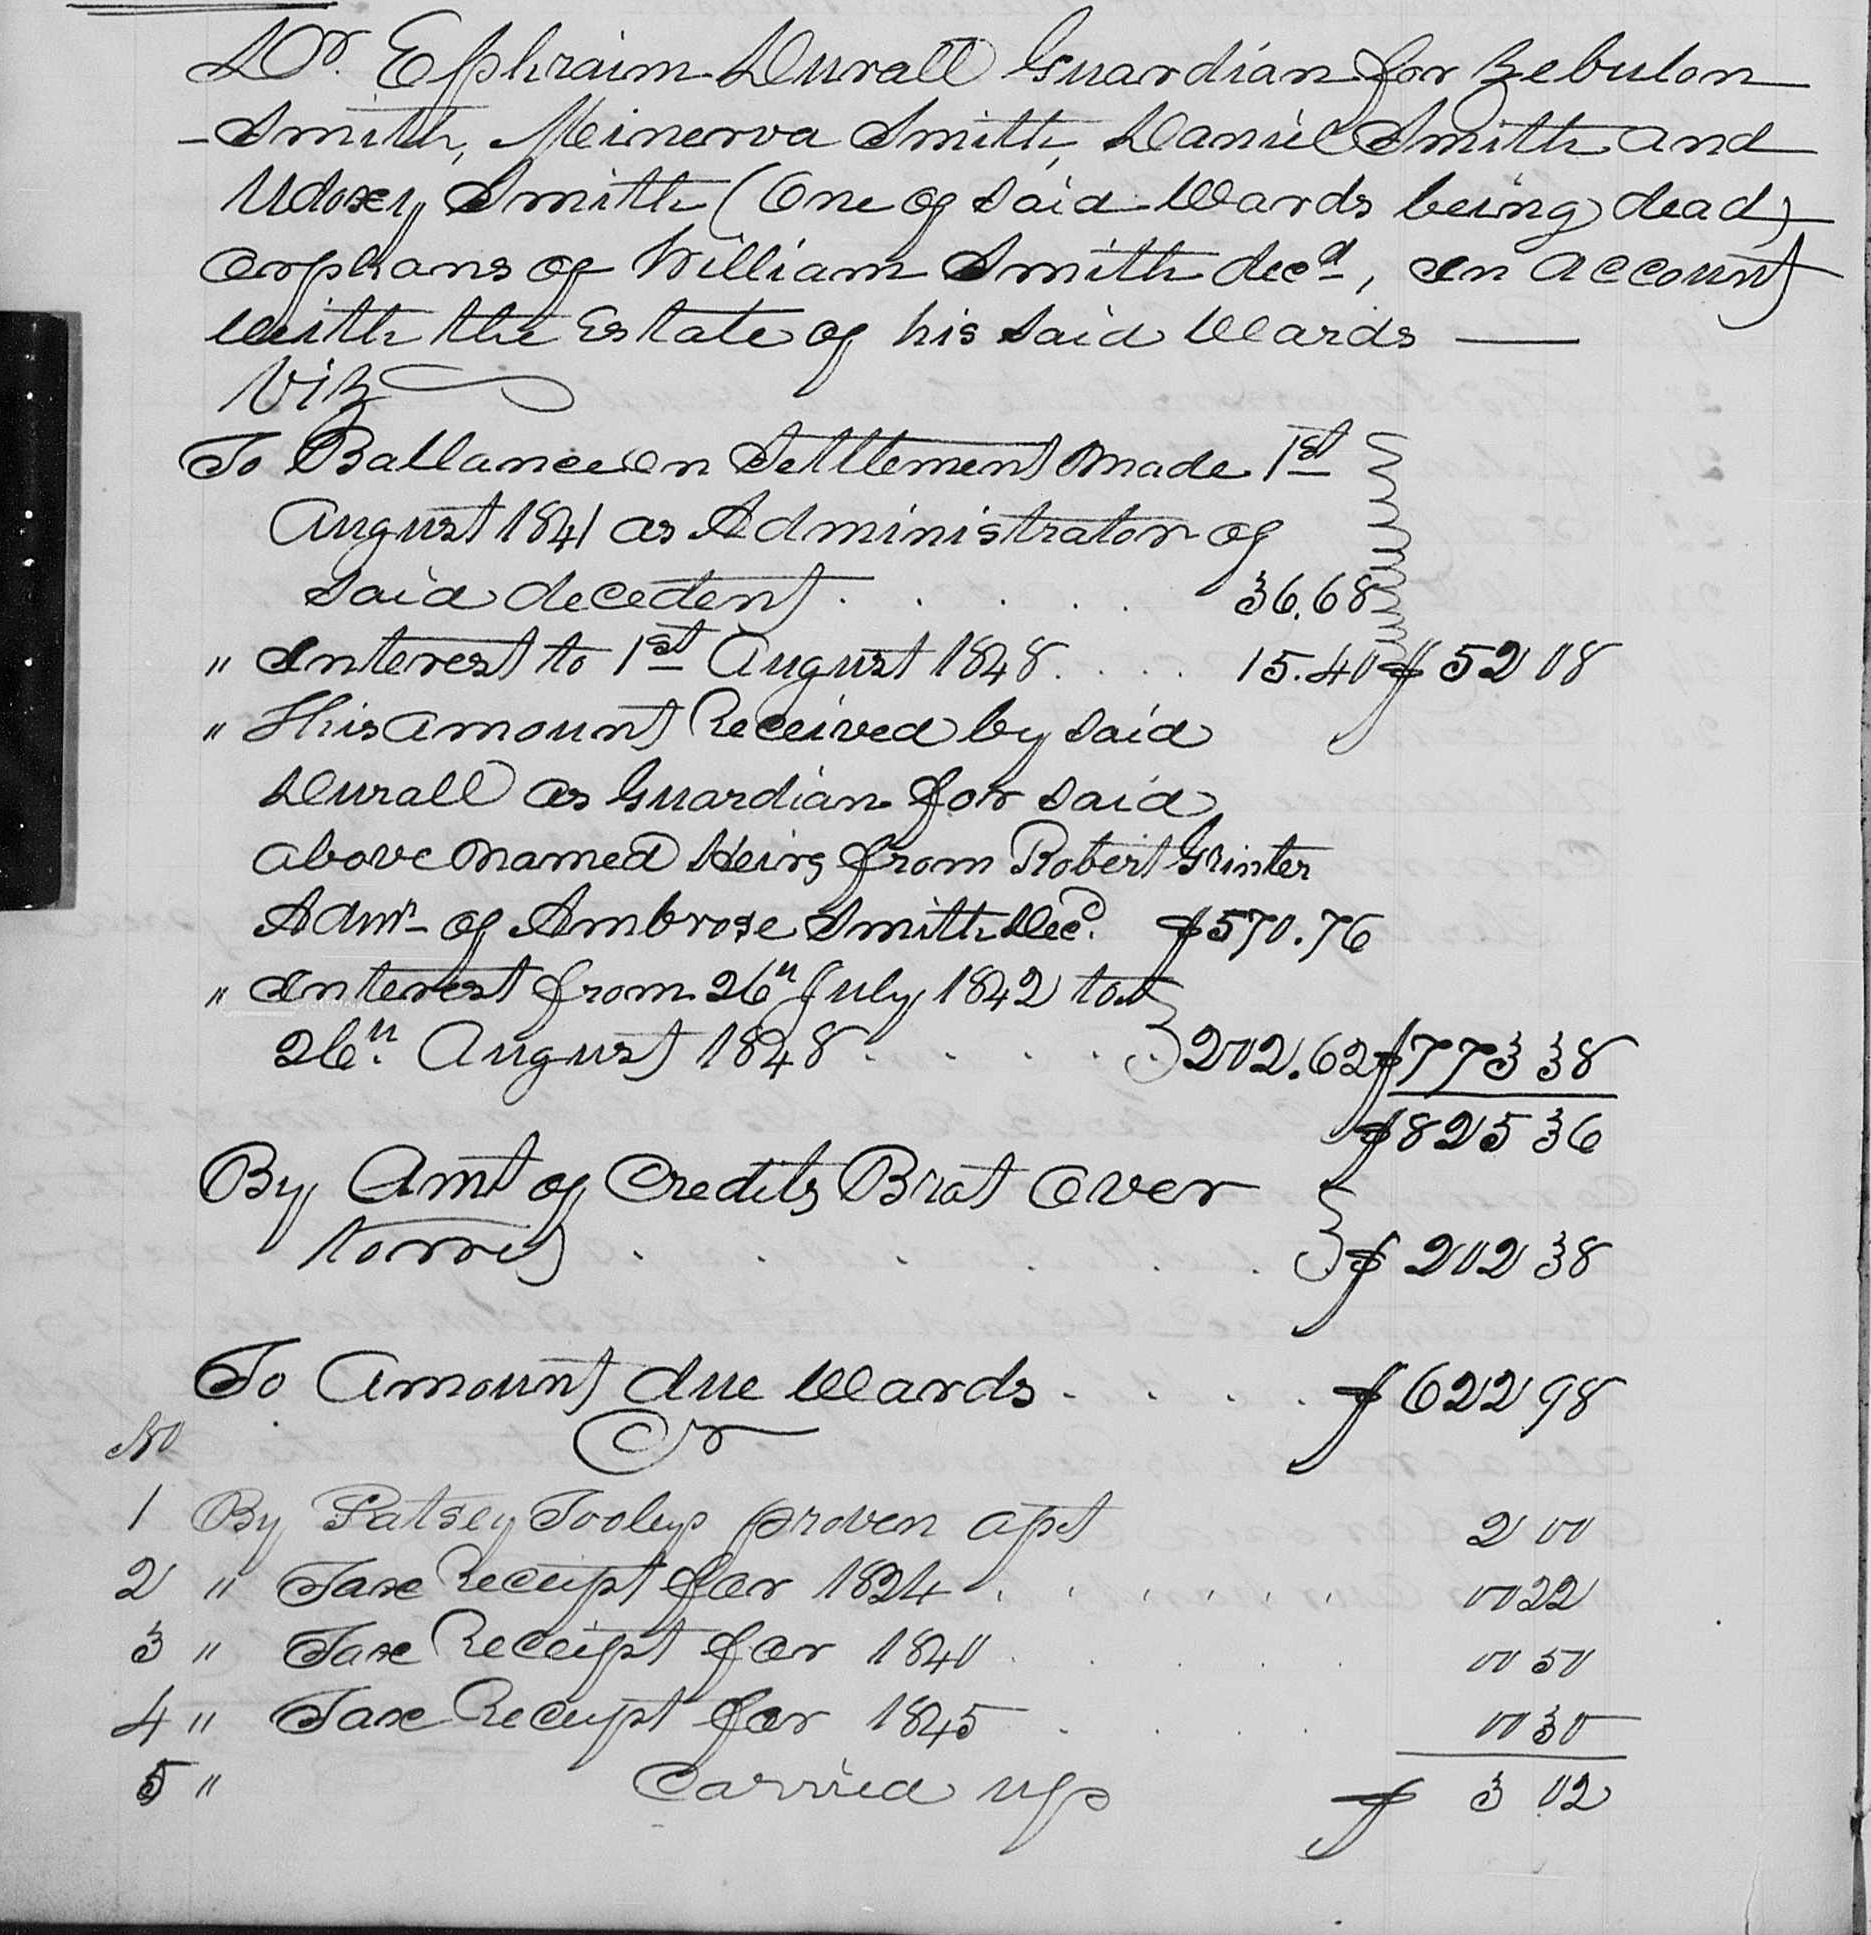 Dr. Ephraim Durall Guardian for Zebulon
Smith, Minerva Smith, Daniel Smith and
Udoxey Smith (One of said Wards being dead)
Orphans of William Smith decd, In account
with the Estate of his said Wards —
Viz
To Ballance on Settlement made 1st
August 1841 as Administrator of
said decedent . . . . . 36.68
" Interest to 1st August 1848 . . . . 15.40 $ 52 08
" This amount Received by said
Durall as Guardian for said
above named Heirs from Robert Grinter
Admr of Ambrose Smith Decd. $570.76
" Interest from 26th July 1842 to
26th August 1848 . . . . . 202.62 $ 773 38
$ 825 36
By Amt of Credits Brot Over
. . . . . . $ 202 38
To Amount due Wards . . . . $ 622 98
No Cr
1 By Patsey Tooleys proven apt 2 00
2 " Taxe Receipt for 1824 . . . . . . . 00 22
3 " Taxe Receipt for 1840 . . . . 00 50
4 " Taxe Receipt for 1845 . . . . 00 30
5 " Carried up $ 3 02